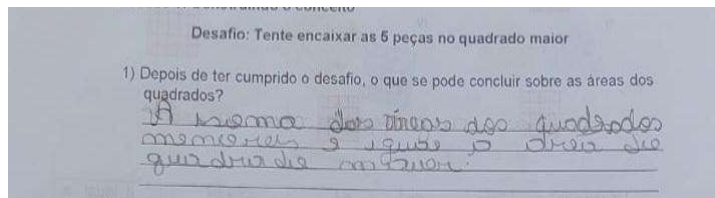 Desafio: Tente encaixar as 5 peças no quadrado maior
1) Depois de ter cumprido o desafio, o que se pode concluir sobre as áreas dos
quadrados?
A soma das áreas dos quadrados
menores é igual a área do
quadrado maior.